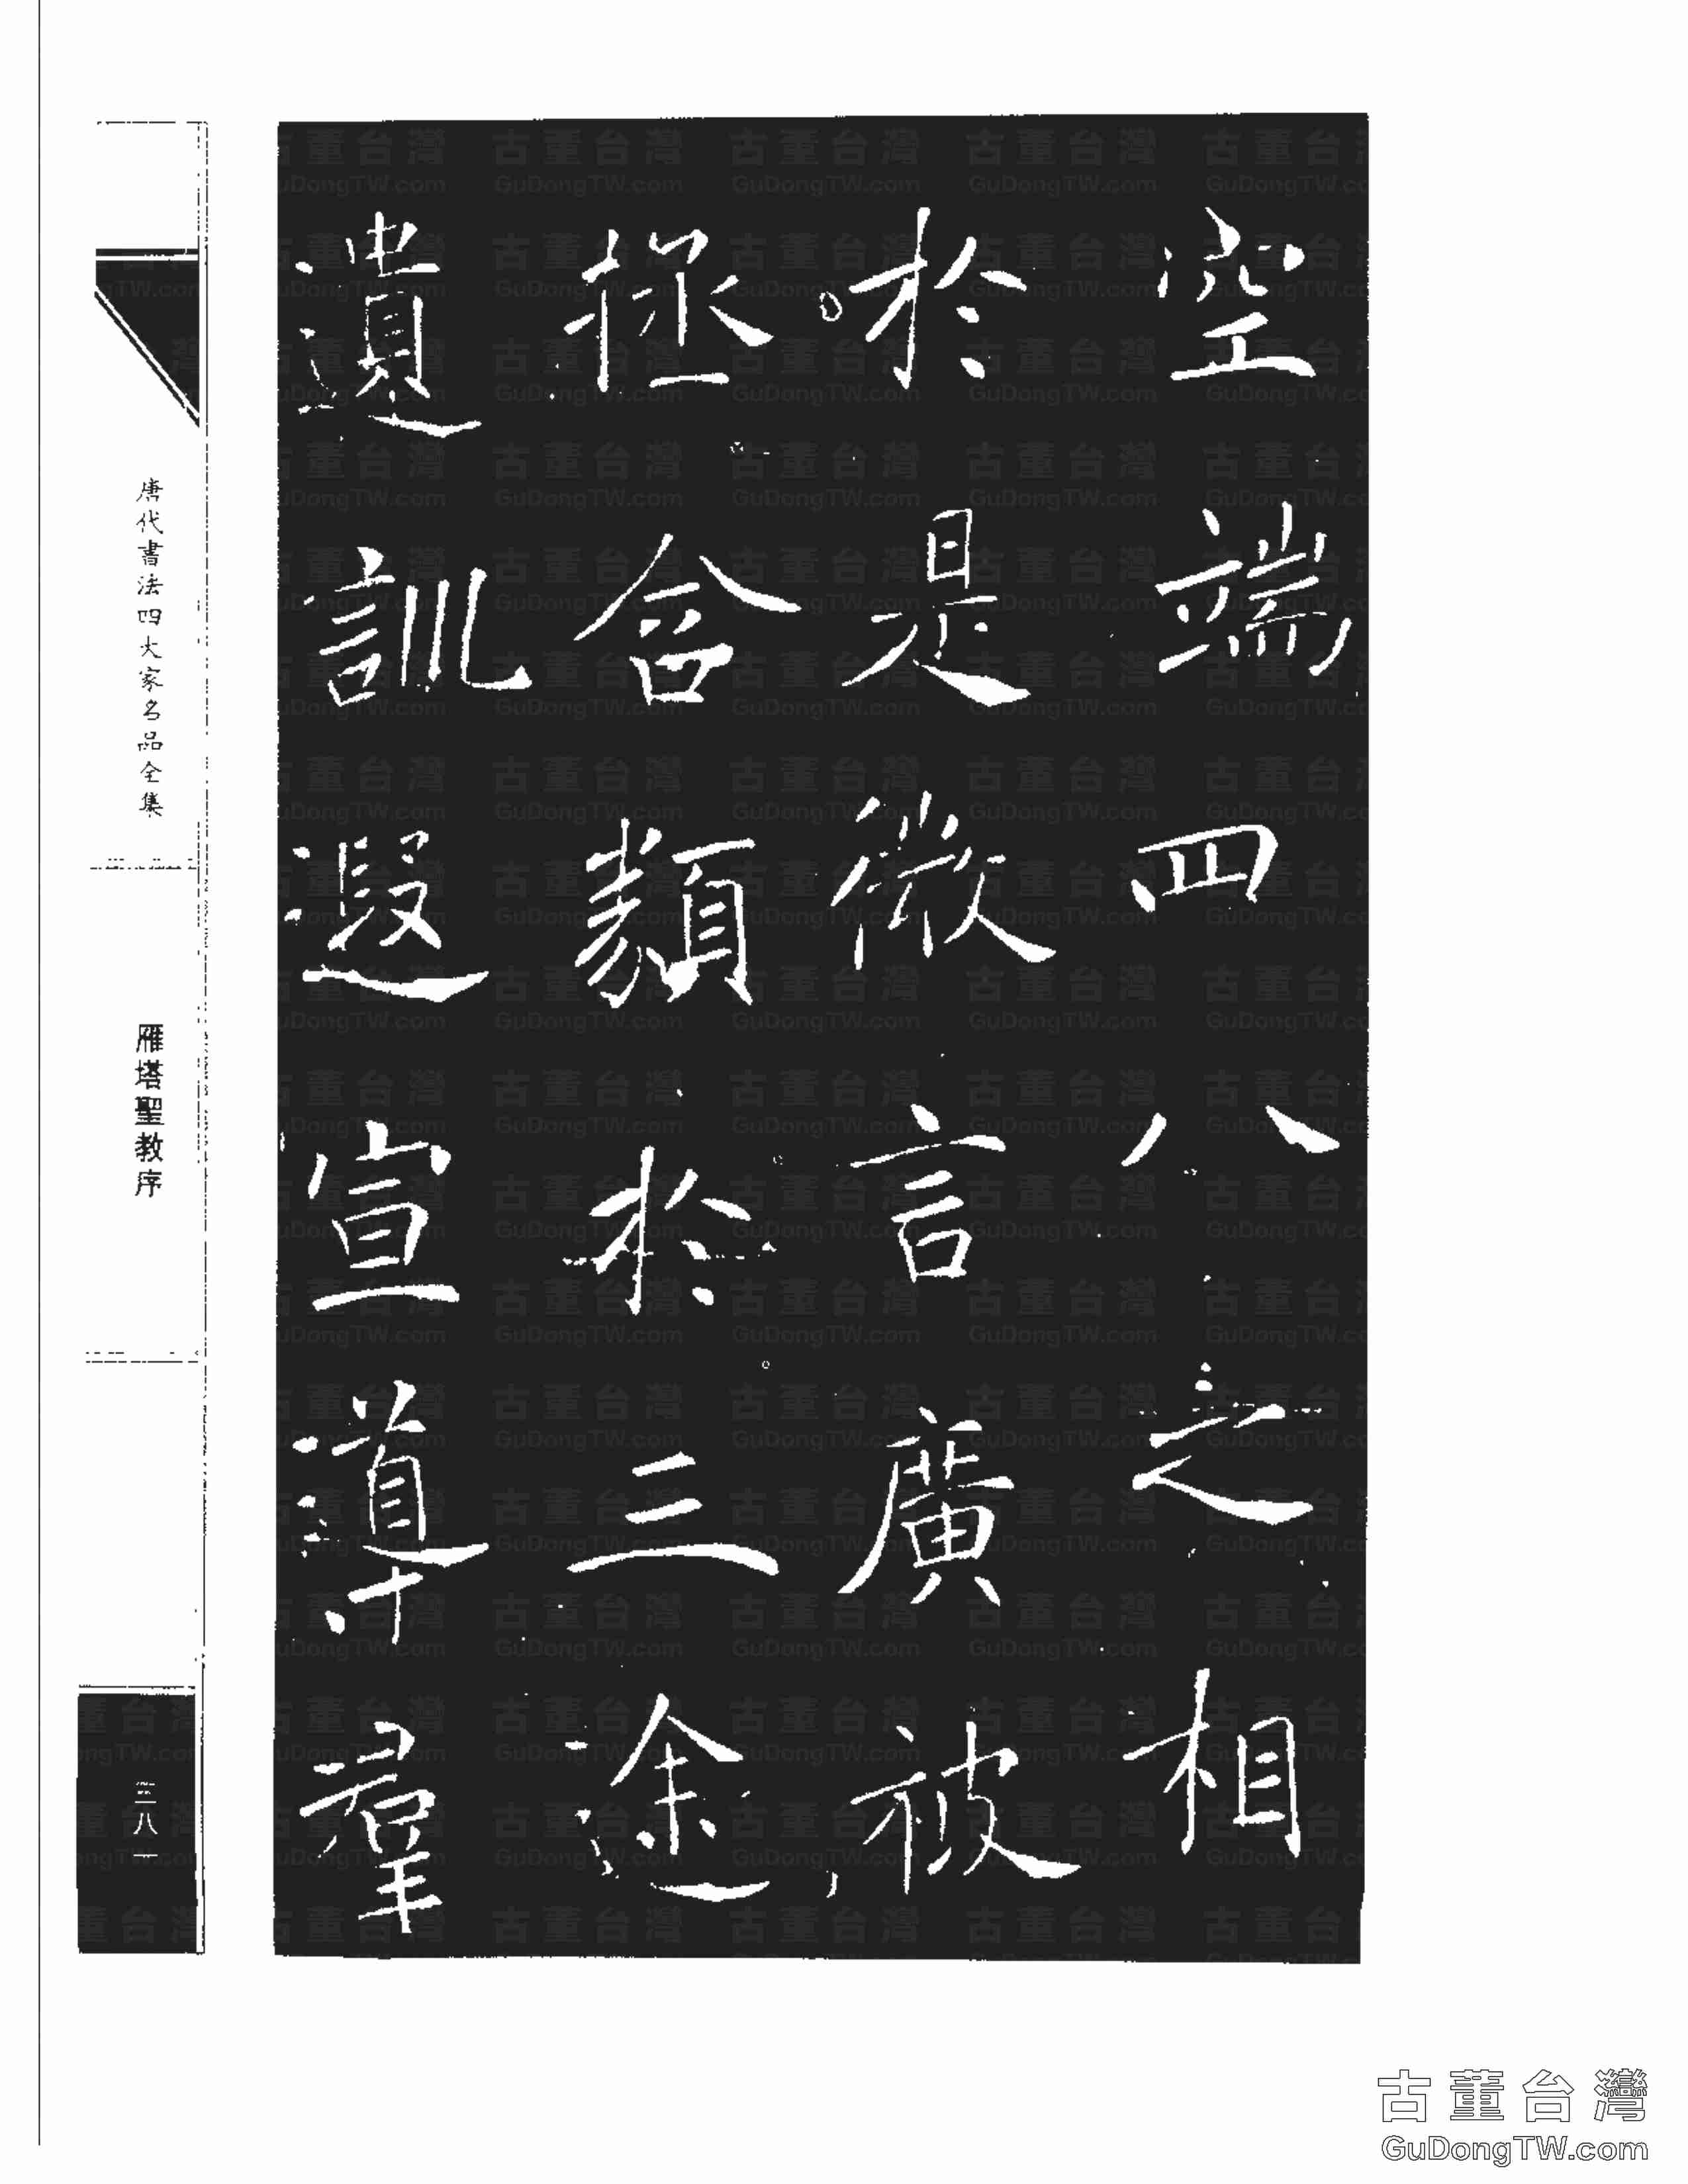 空端四八之相
於是微言廣被
拯含類於三途
遺訓遐宣導羣
唐代書法四大家名品全集
雁塔聖教序
三八一
古董台灣
GuDongTW.com